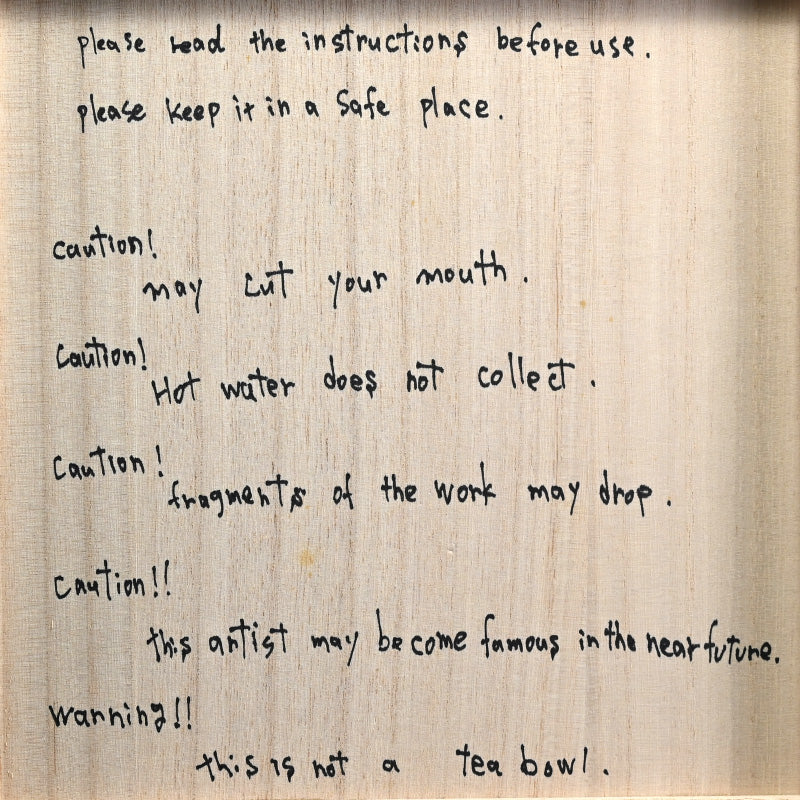 please read the instructions before use.
please keep it in a safe place.
caution!
may cut your mouth.
Caution!
Hot water does not collect.
Caution!
fragments of the work may drop.
Caution!!
this artist may become famous in the near future.
Warning!!
this is not a tea bowl.